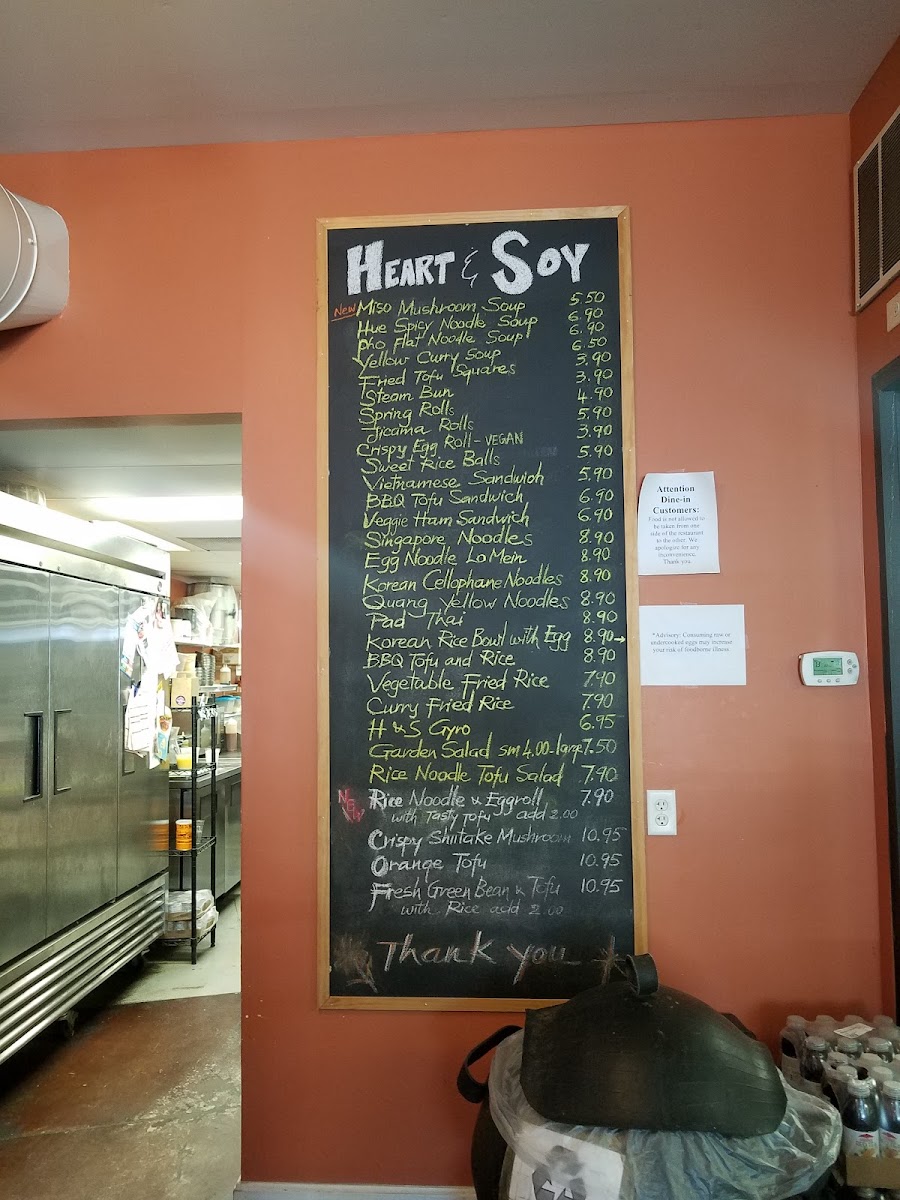 HEART & SOY
New Miso Mushroom Soup 5.50
Hue Spicy Noodle Soup 6.90
Pho Flat Noodle Soup 6.90
Yellow Curry Soup 6.50
Fried Tofu Squares 3.90
Steam Bun 3.90
Spring Rolls 4.90
Jicama Rolls 5.90
Crispy Egg Roll - VEGAN 3.90
Sweet Rice Balls 5.90
Vietnamese Sandwich 5.90
BBQ Tofu Sandwich 6.90
Veggie Ham Sandwich 6.90
Singapore Noodles 8.90
Egg Noodle Lo Mein 8.90
Korean Cellophane Noodles 8.90
Quang Yellow Noodles 8.90
Pad Thai 8.90
Korean Rice Bowl with Egg 8.90→
BBQ Tofu and Rice 8.90
Vegetable Fried Rice 7.90
Curry Fried Rice 7.90
H & S Gyro 6.95
Garden Salad sm 4.00 - large 7.50
Rice Noodle Tofu Salad 7.90
NEW Rice Noodle & Eggroll 7.90
with Tasty Tofu add 2.00
Crispy Shiitake Mushroom 10.95
Orange Tofu 10.95
Fresh Green Bean & Tofu 10.95
with Rice add 2.00
Thank you
Attention
Dine-in
Customers:
Food is not allowed to
be taken from one
side of the restaurant
to the other. We
apologize for any
inconvenience.
Thank you
*Advisory: Consuming raw or
undercooked eggs may increase
your risk of foodborne illness